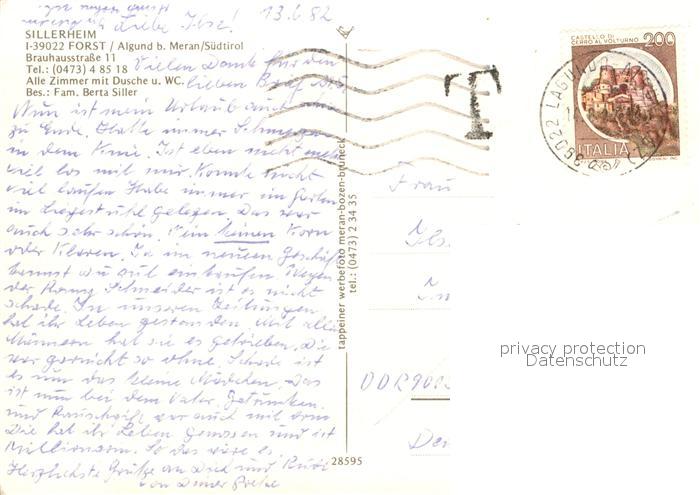 13.6 82
Liebe Ilse!
SILLERHEIM
I-39022 FORST / Algund b. Meran/Südtirol
Brauhausstraße 11
Tel.: (0473) 4 85 18
Alle Zimmer mit Dusche u. WC.
Bes.: Fam. Berta Siller
Vielen Dank für den
lieben Brief
Nun ist mein Urlaub auch
zu Ende. Hatte immer Schmerzen
in dem Knie. Ist eben nicht mehr
viel los mit mir. Konnte nicht
viel laufen Habe immer im Garten
im Liegestuhl gelegen. Das war
auch sehr schön. Kein keinen Korn
oder Klaren. In im neuen Geschäft
kannst du auch einkaufen Wegen
der Romy Schneider ist es nicht
schade. In unseren Zeitungen
hat ihr Leben gestanden. Mit allen
Männern hat sie es getrieben. Die
war garnicht so ohne. Schade ist
es um das kleine Mädchen. Das
ist nun bei dem Vater. Getrunken
und Rauschgift war auch mit drin
Die hat ihr Leben genossen und ist
Millionärin. So das wäre es
Herzlichste Grüße an Dich und
von Deiner
tappeiner werbefoto meran-bozen-bruneck
tel.: (0473) 2 34 35
28595
T
CASTELLO DI
CERRO AL VOLTURNO
200
ITALIA
39022 LAGUNDO
Frau
Ils
DDR 90
privacy protection
Datenschutz